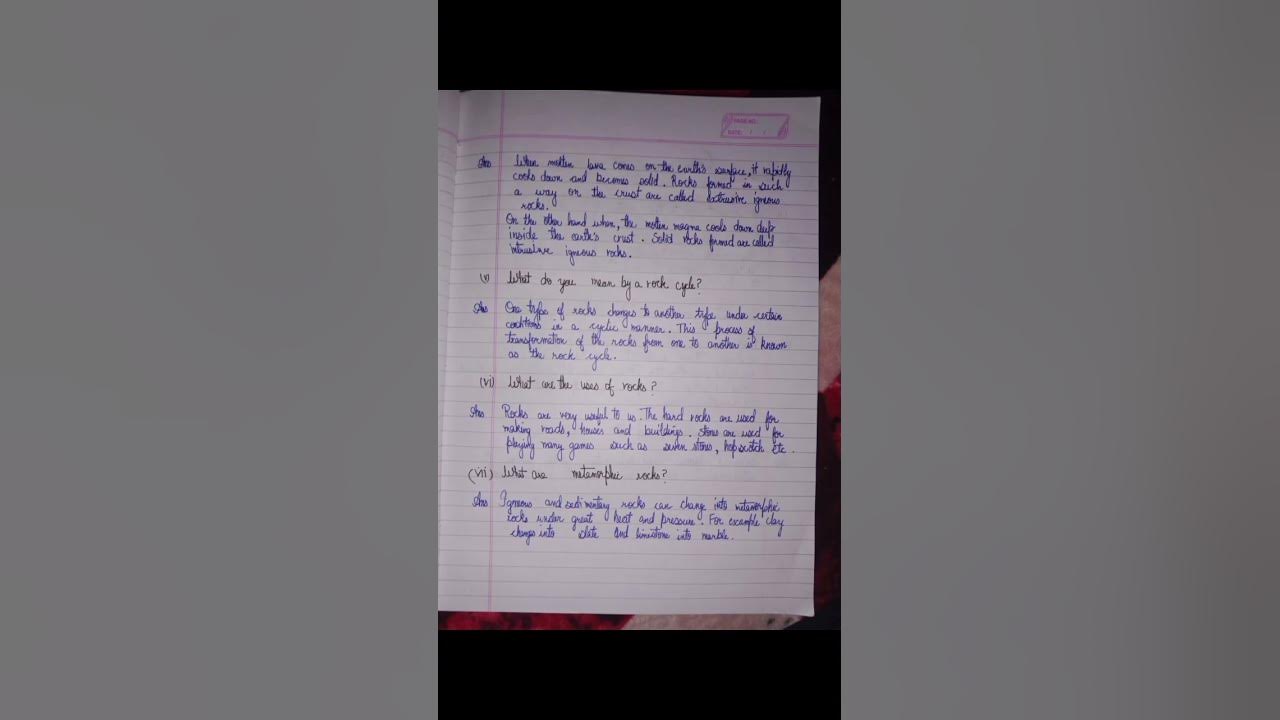 PAGE NO.:
DATE: / /
Ans When molten lava comes on the earth's surface, it rapidly
cools down and becomes solid. Rocks formed in such
a way on the crust are called extrusive igneous
rocks.
On the other hand when, the molten magma cools down deep
inside the earth's crust. Solid rocks formed are called
intrusive igneous rocks.
(v) What do you mean by a rock cycle?
Ans One type of rocks changes to another type under certain
conditions in a cyclic manner. This process of
transformation of the rocks from one to another is known
as the rock cycle.
(vi) What are the uses of rocks?
Ans Rocks are very useful to us. The hard rocks are used for
making roads, houses and buildings. Stones are used for
playing many games such as seven stones, hopscotch etc.
(vii) What are metamorphic rocks?
Ans Igneous and sedimentary rocks can change into metamorphic
rocks under great heat and pressure. For example clay
changes into slate and limestone into marble.